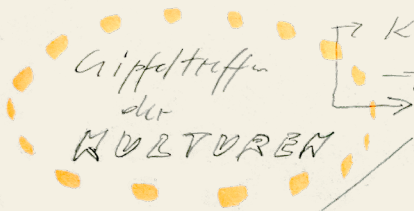 Gipfeltreffen
der
KULTUREN
K